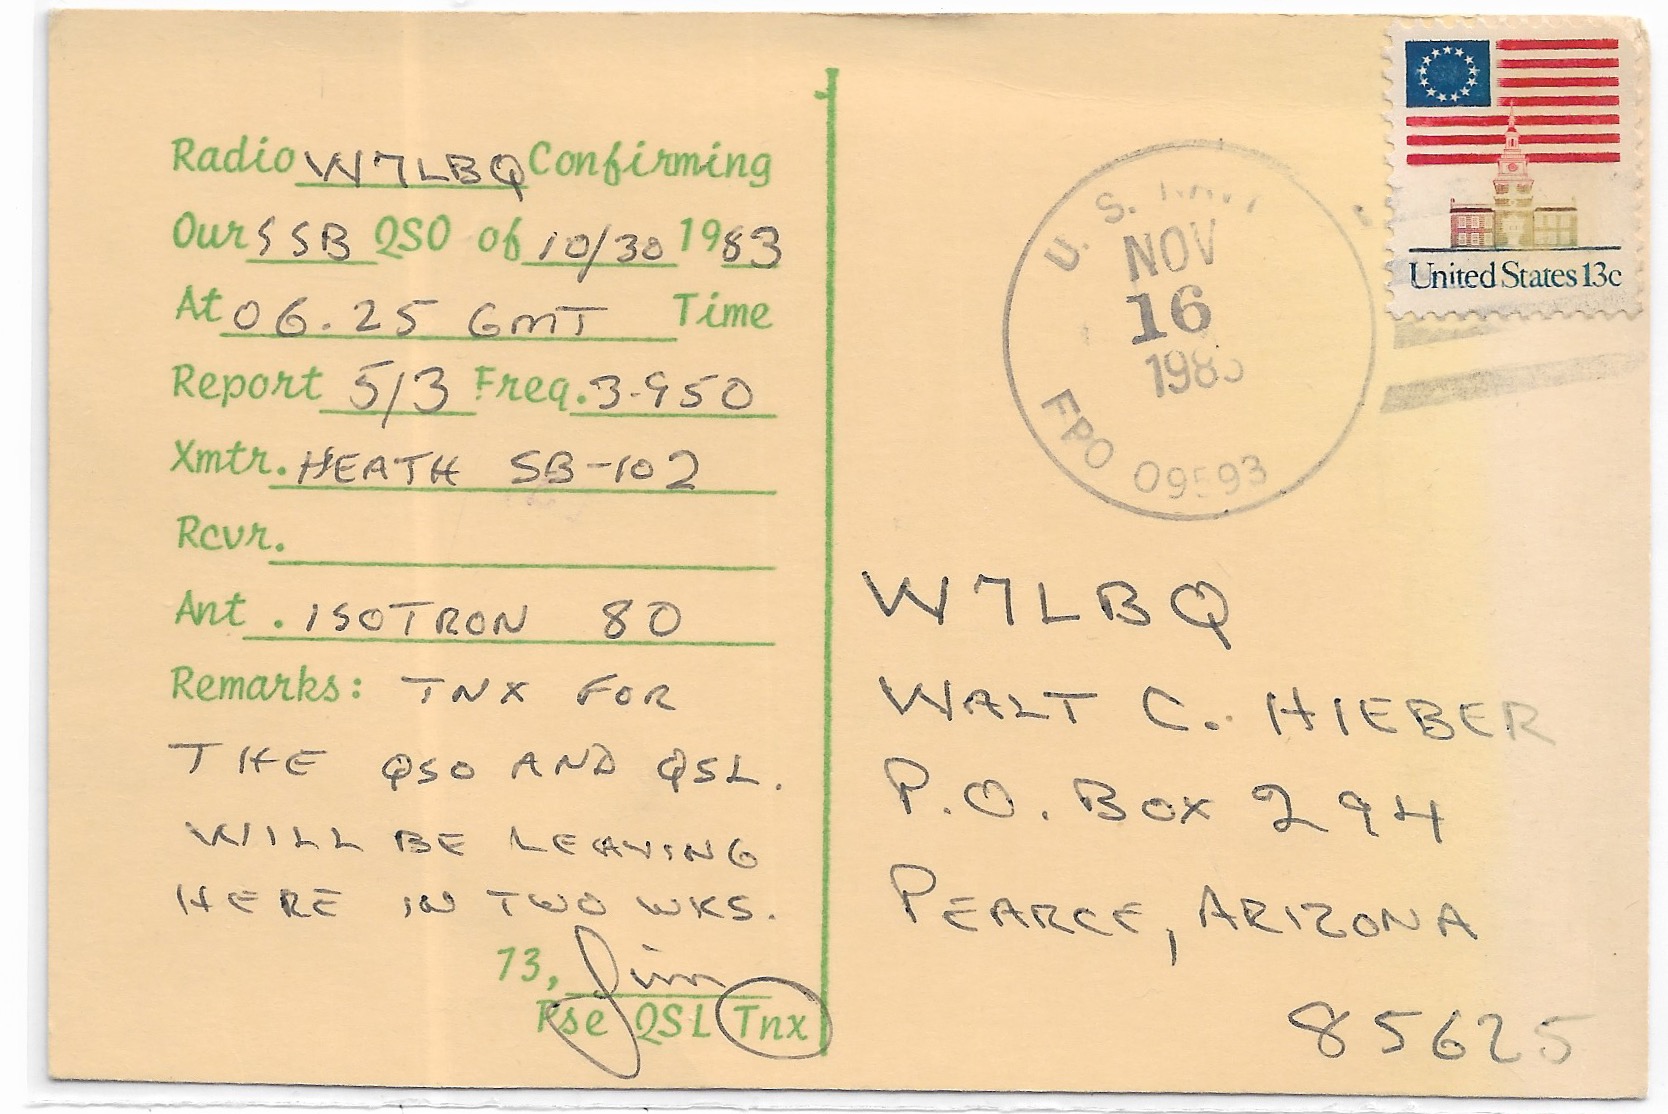 Radio W7LBQ Confirming
Our SSB QSO of 10/30 1983
At 06.25 GMT Time
Report 5/3 Freq. 3.950
Xmtr. HEATH SB-102
Rcvr.
Ant. ISOTRON 80
Remarks: TNX FOR
THE QSO AND QSL.
WILL BE LEAVING
HERE IN TWO WKS.
73, Jim
Pse QSL Tnx
United States 13c
U. S.
NOV
16
FPO 09593
W7LBQ
WALT C. HIEBER
P.O. BOX 294
PEARCE, ARIZONA
85625